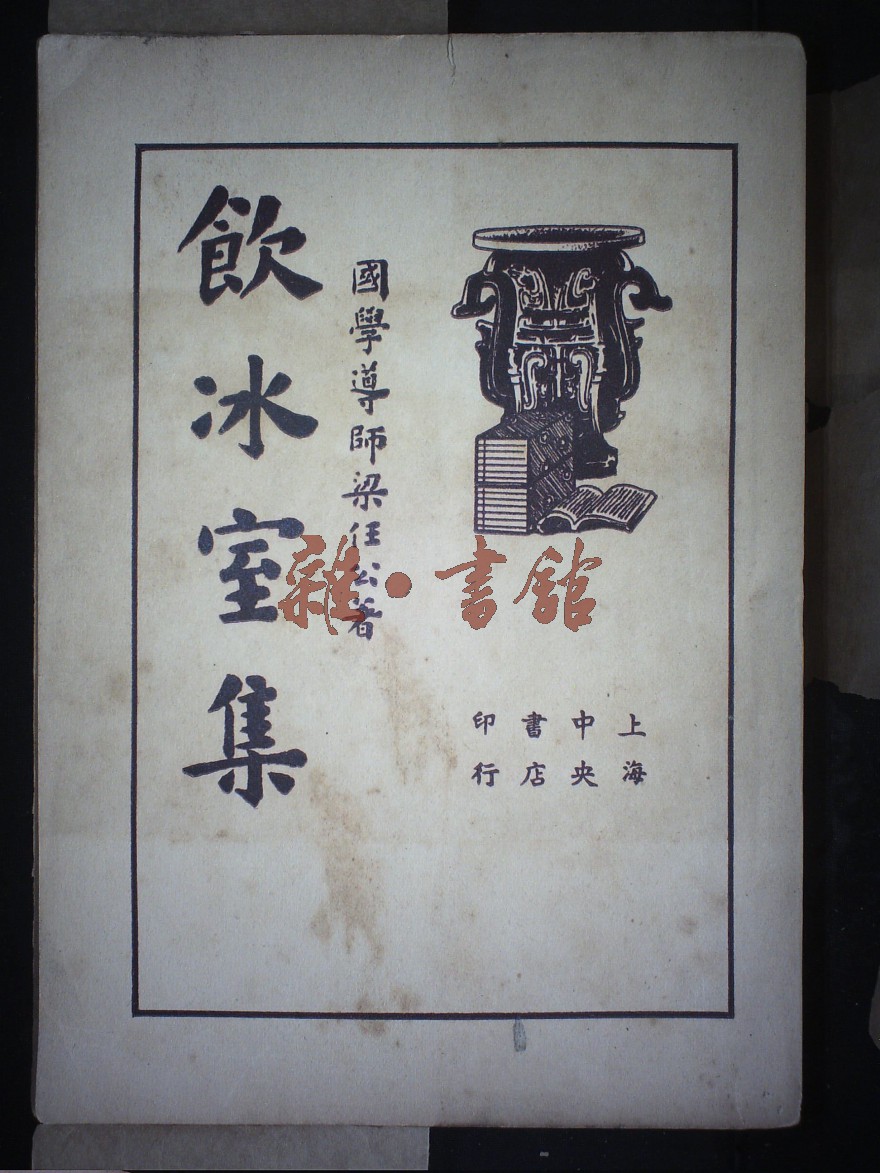 上海
中央
書店
印行
國學導師梁任公著
飲冰室集
雜·書館